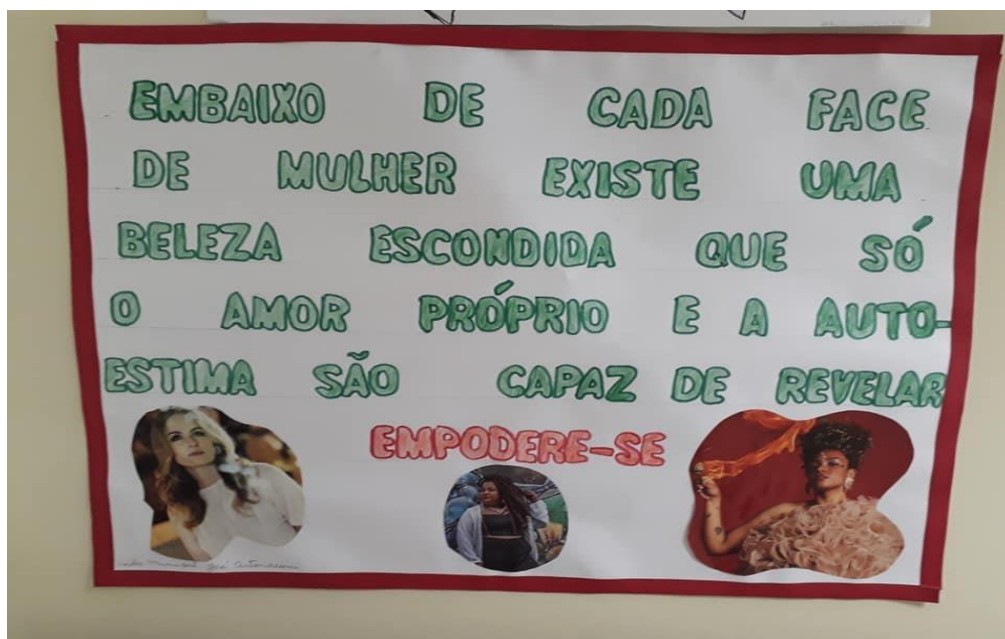 EMBAIXO DE CADA FACE
DE MULHER EXISTE UMA
BELEZA ESCONDIDA QUE SÓ
O AMOR PRÓPRIO E A AUTO-
ESTIMA SÃO CAPAZ DE REVELAR
EMPODERE-SE